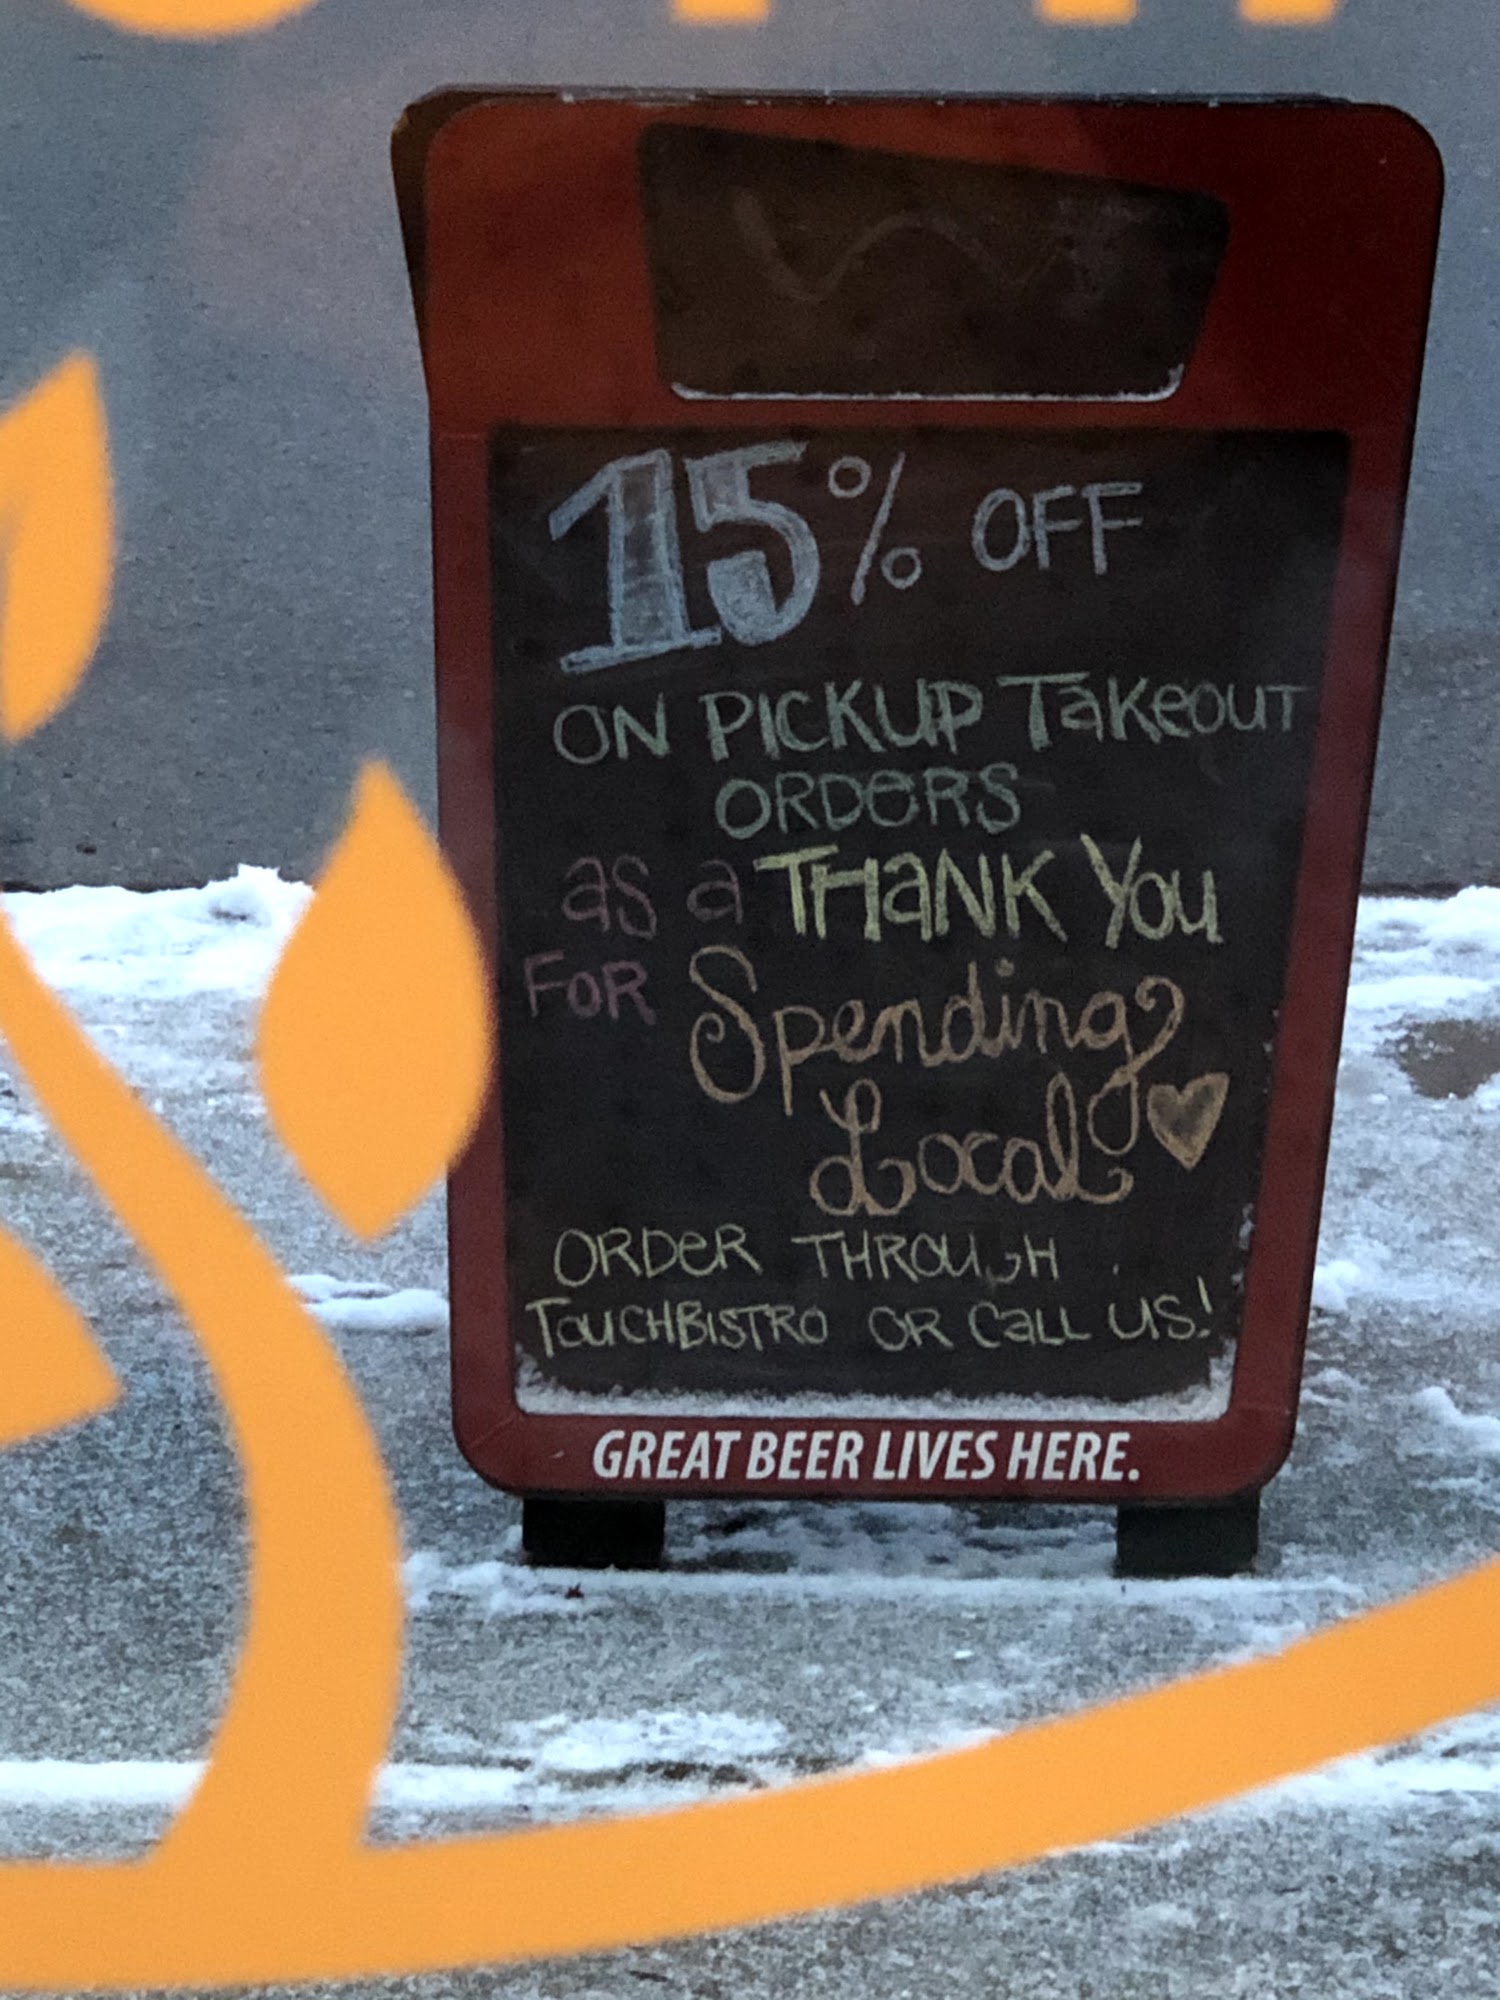 15% OFF
ON PICKUP TaKeOUT
ORDeRS
as a THaNK You
FOR Spending
Local
ORDeR THROUGH
TOUCHBISTRO OR CaLL US!
GREAT BEER LIVES HERE.